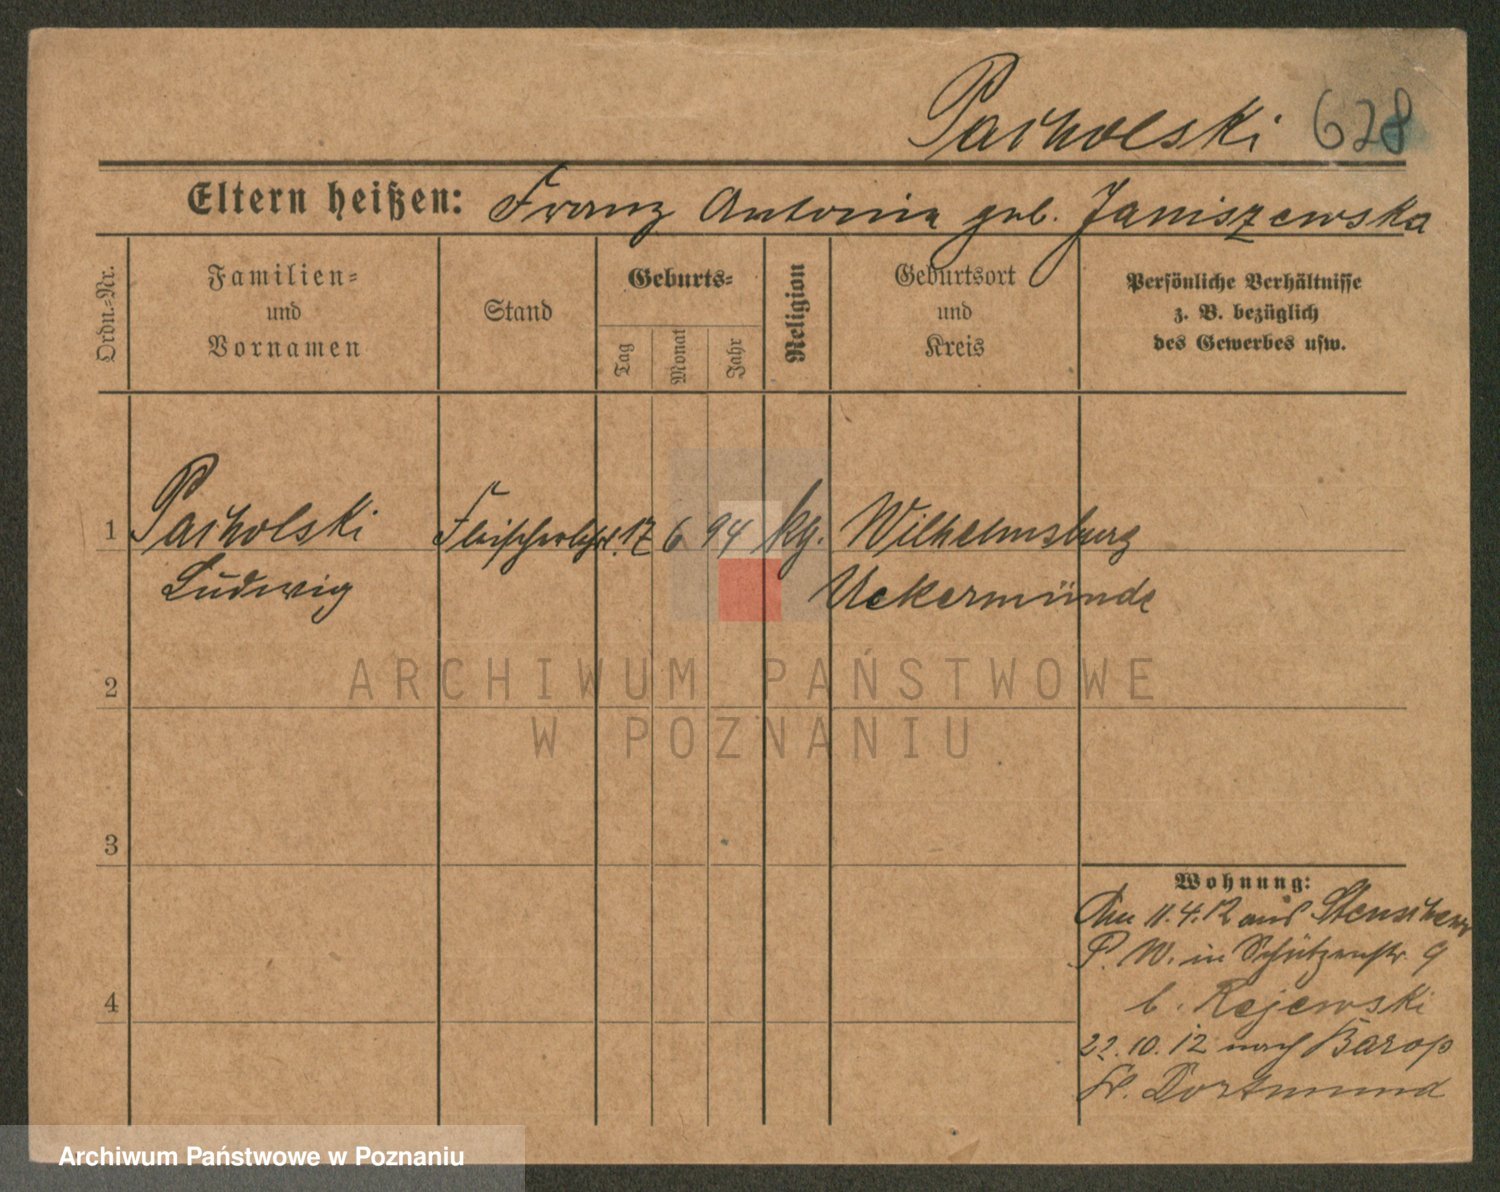 Pacholski 628
Eltern heißen: Franz Antonia geb. Janiszewska
Ordn.-Nr.
Familien- und Vornamen
Stand
Geburts-
Tag
Monat
Jahr
Religion
Geburtsort und Kreis
Persönliche Verhältnisse z. B. bezüglich des Gewerbes usw.
1 Pacholski Fleischerlehrl. 17 6 94 kg. Wilhelmsburg
Ludwig Uekermünde
2
ARCHIWUM PAŃSTWOWE
W POZNANIU
3
Wohnung:
11.4.12 aus
P. W. in Schützenstr. 9
b. Rajewski
4
22.10.12 nach Barop
Kr. Dortmund
Archiwum Państwowe w Poznaniu